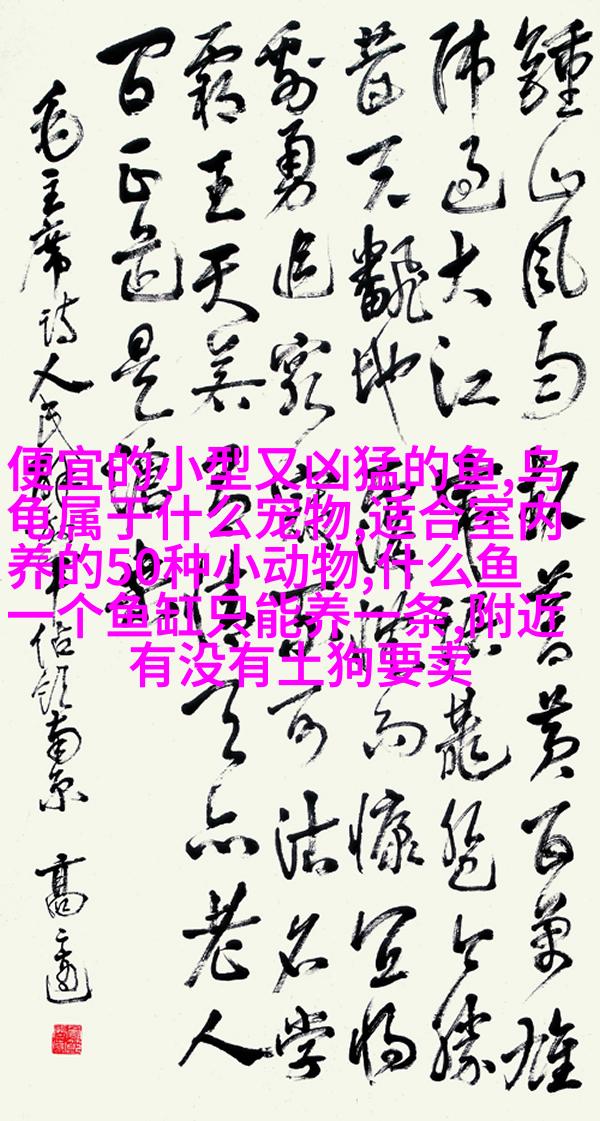 鍾山风雨起苍黄百万雄
师过大江虎踞龙盘今胜
昔天翻地覆慨而慷宜将
剩勇追穷寇不可沽名学
霸王天若有情天亦老人
间正道是沧桑
毛主席诗人民解放军占领南京 高
便宜的小型又凶猛的鱼,乌
龟属于什么宠物,适合室内
养的50种小动物,什么鱼
一个鱼缸只能养一条,附近
有没有土狗要卖